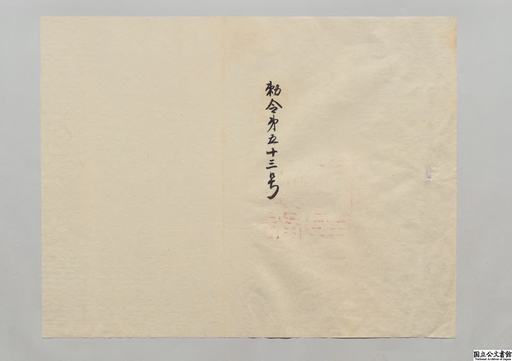 勅令第五十三号
国立公文書館
National Archives of Japan